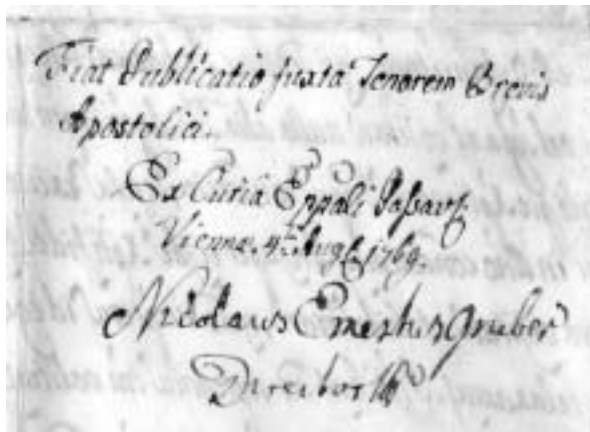 Fiat Publicatio juxta Tenorem Brevis
Apostolici.
Ex Curia Eppali Passavs
Viennæ 4ta Augs 1769.
Nicolaus Ernestus Gruber
Director